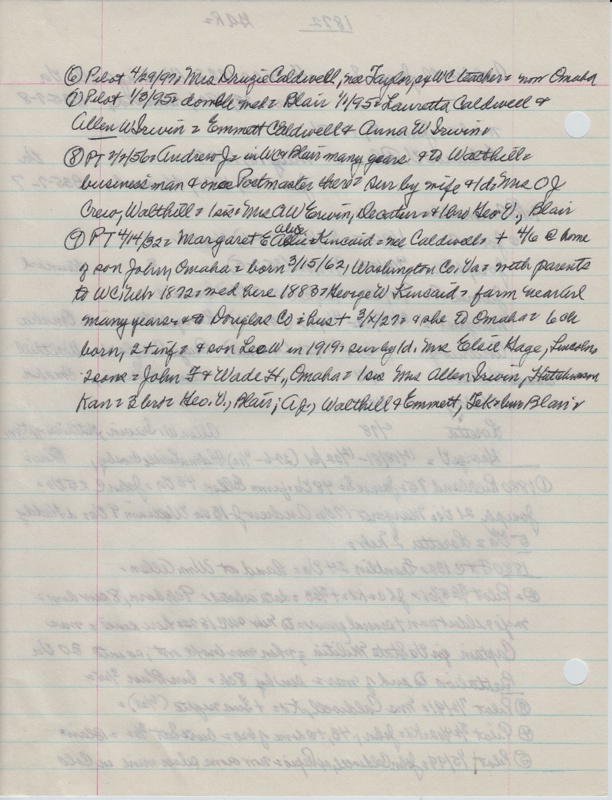 ⑥ Pilot 4/29/97= Mrs Drugie Caldwell, nee Taylor, WC teacher= now Omaha
⑦ Pilot 1/3/95= double wed= Blair 1/1/95= Lauretta Caldwell &
Allen W Irwin = Emmett Caldwell & Anna W Irwin=
⑧ PT 2/2/56= Andrew J= in WC & Blair many years & to Walthill=
business man & once Postmaster there= sur by wife & 1 d= Mrs O J
Crew, Walthill= 1 sis= Mrs A W Erwin, Decatur= & 1 bro Geo V., Blair
⑨ PT 4/14/32= Margaret E Alice Kincaid= nee Caldwell= + 4/6 @ home
of son John, Omaha= born 3/15/62, Washington Co. Va= with parents
to WC, Neb 1872= wed here 1883= George W Kincaid= farm near
many years= & to Douglas Co= hus + 3/x/27= & she to Omaha= 6 ch
born, 2 + inf= & son Leo W in 1919= sur by 1 d. Mrs Elsie Gage, Lincoln
2 sons= John F & Wade H., Omaha= 1 sis Mrs Allen Irwin, Hutchinson
Kan= 3 bro= Geo. V., Blair, A J, Walthill & Emmett, Blair=